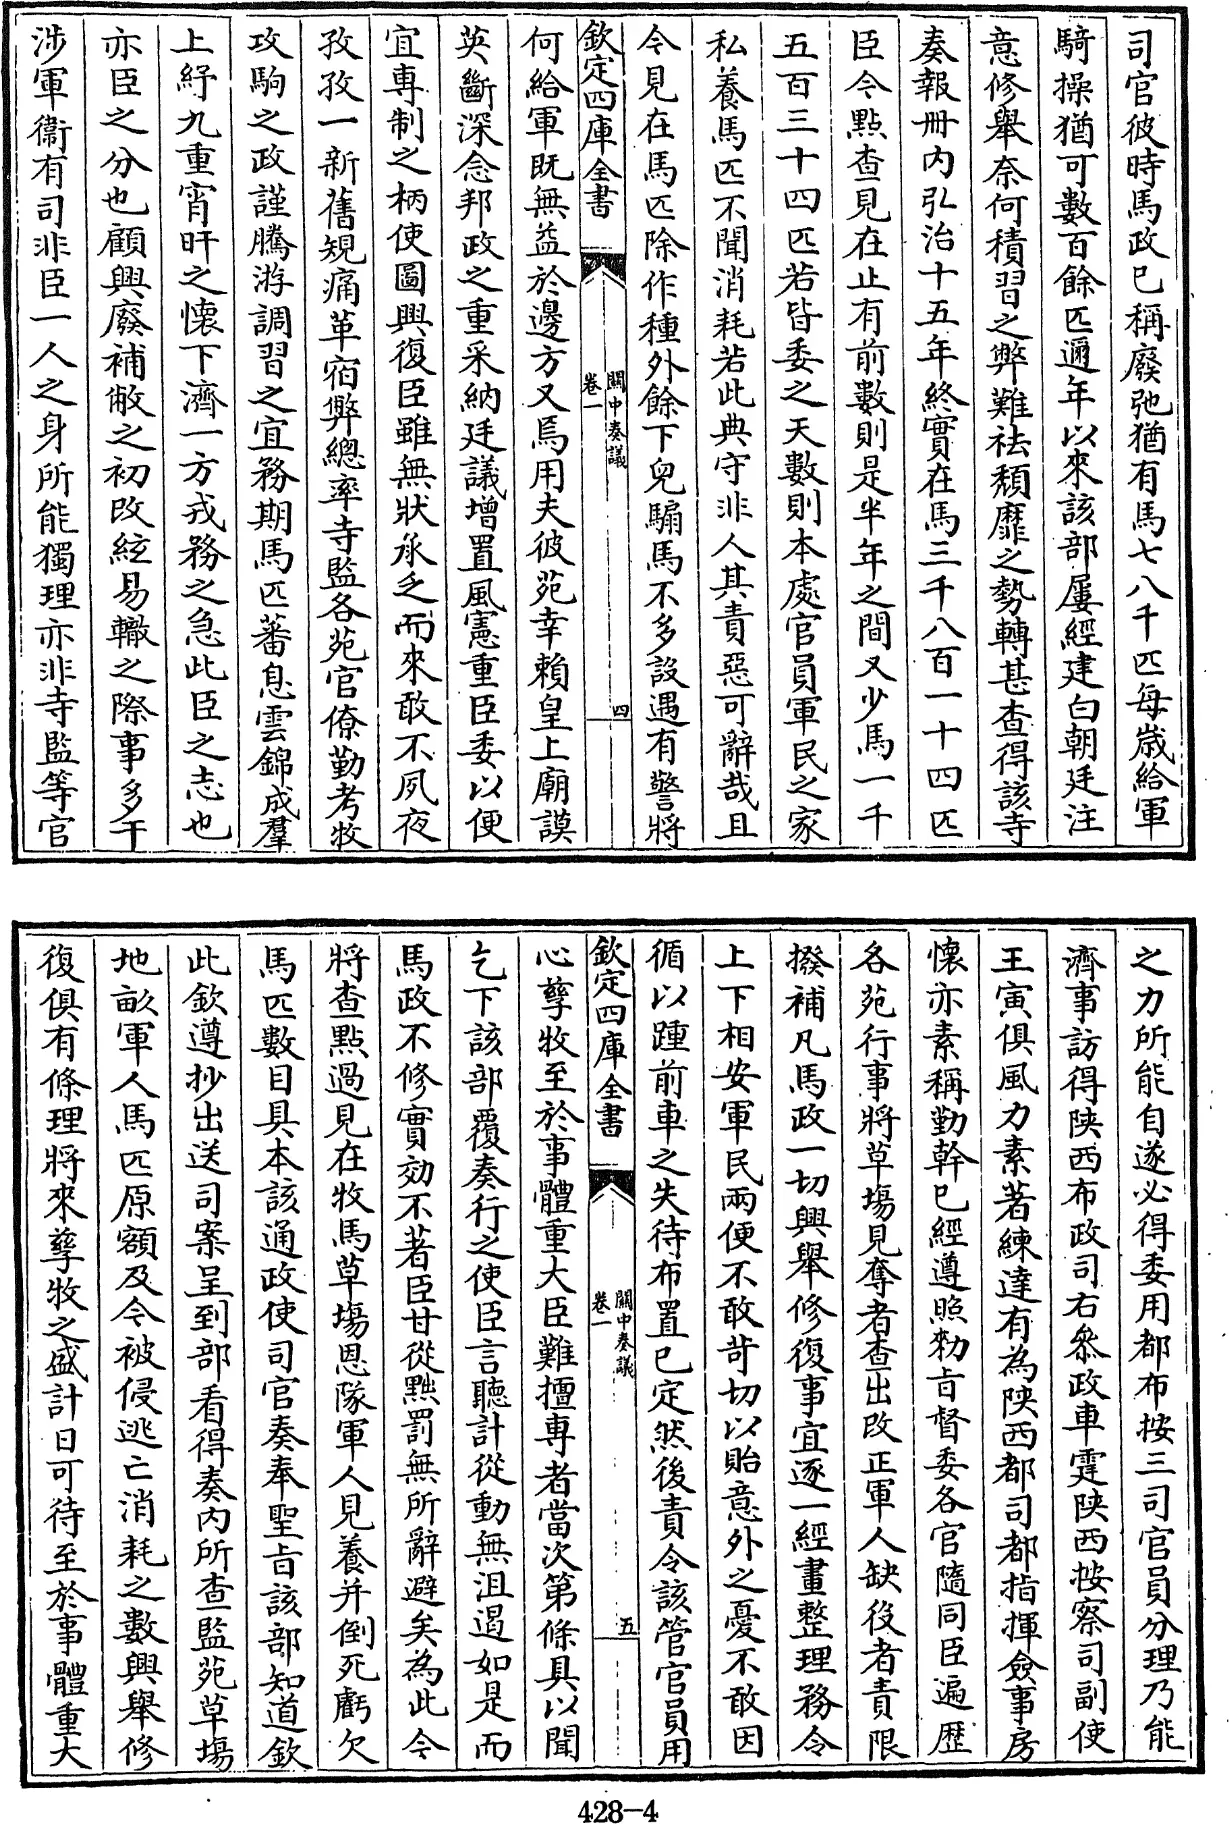 司官彼時馬政已稱廢弛猶有馬七八千匹每歲給軍
騎操猶可數百餘匹邇年以來該部屢經建白朝廷注
意修舉奈何積習之弊難祛頽靡之勢轉甚查得該寺
奏報冊内弘治十五年終實在馬三千八百一十四匹
臣令點查見在止有前數則是半年之間又少馬一千
五百三十四匹若皆委之天數則本處官員軍民之家
私養馬匹不聞消耗若此典守非人其責惡可辭哉且
今見在馬匹除作種外餘下兒騸馬不多設遇有警將
欽定四庫全書 關中奏議 卷一 四
何給軍既無益於邊方又焉用夫彼苑幸賴皇上廟謨
英斷深念邦政之重采納廷議增置風憲重臣委以便
宜專制之柄使圖興復臣雖無狀承乏而來敢不夙夜
孜孜一新舊規痛革宿弊總率寺監各苑官僚勤考牧
攻駒之政謹騰游調習之宜務期馬匹蕃息雲錦成羣
上紓九重宵旰之懷下濟一方戎務之急此臣之志也
亦臣之分也顧興廢補敝之初改絃易轍之際事多干
涉軍衛有司非臣一人之身所能獨理亦非寺監等官
之力所能自遂必得委用都布按三司官員分理乃能
濟事訪得陜西布政司右叅政車霆陜西按察司副使
王寅俱風力素著練達有為陜西都司都指揮僉事房
懐亦素稱勤幹已經遵照勅㫖督委各官隨同臣遍歷
各苑行事將草塲見奪者查出改正軍人缺役者責限
撥補凡馬政一切興舉修復事宜逐一經畫整理務令
上下相安軍民兩便不敢苛切以貽意外之憂不敢因
循以踵前車之失待布置已定然後責令該管官員用
欽定四庫全書 關中奏議 卷一 五
心孳牧至於事體重大臣難擅專者當次第條具以聞
乞下該部覆奏行之使臣言聽計從動無沮遏如是而
馬政不修實効不著臣甘從黜罰無所辭避矣為此今
將查點過見在牧馬草塲恩隊軍人見養并倒死虧欠
馬匹數目具本該通政使司官奏奉聖㫖該部知道欽
此欽遵抄出送司案呈到部看得奏内所查監苑草塲
地畝軍人馬匹原額及今被侵逃亡消耗之數興舉修
復俱有條理將來孳牧之盛計日可待至於事體重大
428-4